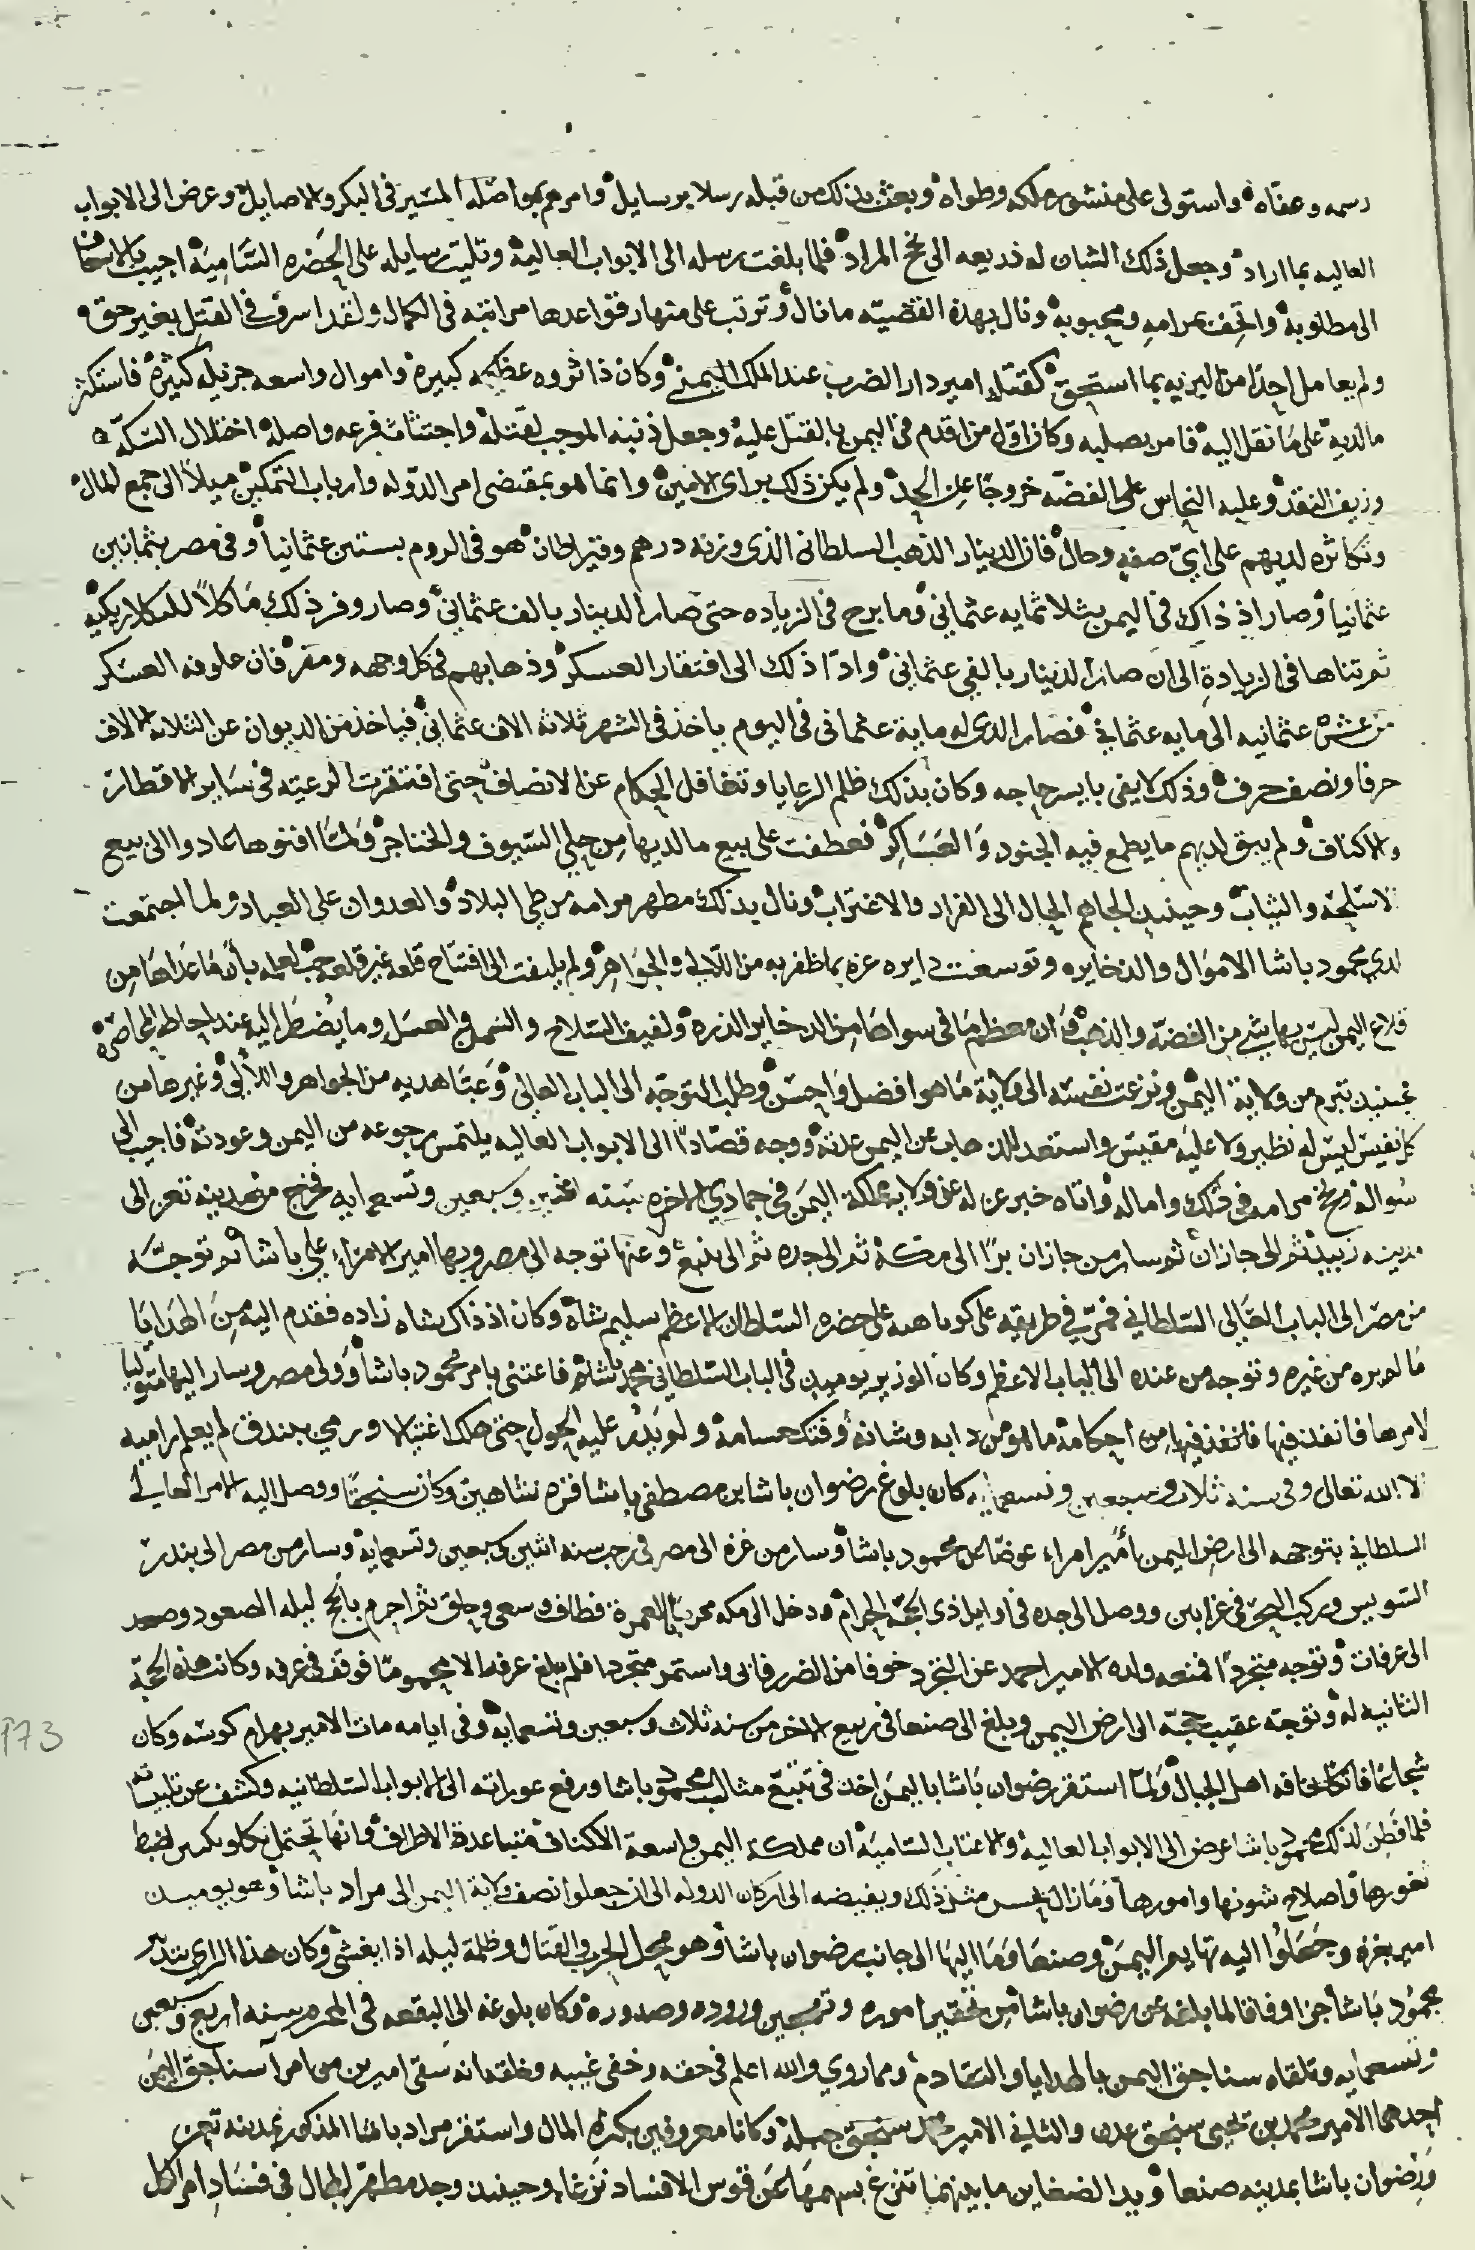 رسمه وعفاه واستولى على منشور ملكه وطواه وبعث بذلك من قبله رسلا برسايل وامرهم بمواصلة المسير فى البكر والاصايل وعرض الى الابواب
العاليه بما اراد وجعل ذلك الشان له ذريعه الى نجح المراد فلما بلغت رسله الى الابواب العالية وتليت رسايله على الحضره السامية اجيب بالاسعاف
الى مطلوبه واتحف بمرامه ومحبوبه ونال بهذه القضيه ما نال وترتب على منهار قواعدها مراتبه فى الكمال ولقد اسرف فى القتل بغير حق
ولم يعامل احدًا من البريه بما استحق كقتله امير دار الضرب عند الملك اليمنى وكان ذا ثروه عظيمه كبيرة واموال واسعه جزيله كثيرة فاستكثر
مالديه على ما نقل اليه فامر بصلبه وكان اول من اقدم فى اليمن بالقتل عليه وجعل ذنبه الموجب لقتله واجتثاث فرعه واصله اختلال السكه
وزيف النقد وغلبه النحاس على الفضه خروجًا عن الحد ولم يكن ذلك براى الامين وانما هو بمقتضى امر الدوله وارباب التمكين ميلا الى جمع المال
وتكاثره لديهم على اي صفه وحال فان الدينار الذهب السلطانى الذى وزنه درهم وقيراطان هو فى الروم بستين عثمانيا وفى مصر بثمانين
عثمانيا وصار اذ ذاك فى اليمن بثلاثمايه عثماني وما برح فى الزياده حتى صار الدينار بالف عثماني وصار وفر ذلك ماكلا للبكلاربكيه
ثم تناها فى الزيادة الى ان صار الدينار بالفي عثماني وادّا ذلك الى افتقار العسكر وذهابهم فى كل وجهه ومفر فان علوفه العسكر
من عشره عثمانيه الى مايه عثماني فصار الذى له ماية عثمانى فى اليوم ياخذ فى الشهر ثلاثة الاف عثماني فياخذ من الديوان عن الثلاثه الالاف
حرفا ونصف حرف وذلك لا يفى بايسر حاجه وكان بذلك ظلم الرعايا وتغافل الحكام عن الانصاف حتى افتقرت الرعيه فى ساير الاقطار
والاكناف ولم يبق لديهم ما يطمع فيه الجنود والعساكر فعطفت على بيع مالديها من حلي السيوف والخناجر ولما افنوها عادوا الى بيع
الاسلحه والثياب وحينيذ الجاهم الحال الى الفرار والاغتراب ونال بذلك مطهر مرامه من طي البلاد والعدوان على العباد ولما اجتمعت
لدي محمود باشا الاموال والذخايره وتوسعت دايره عزه بما ظفر به من اللالي والجواهر ولم يلتفت الى افتتاح قلعه غير قلعه حب لعلمه بان ما عداها من
قلاع اليمن ليس بها شي من الفضه والذهب فان معظم ما فى سواها من الدخاير الذره ولفيف السلاح والسمن والعسل وما يضطر اليه عند احاطه المحاصره
فحينيذ تبرم من ولاية اليمن ونزعت نفسه الى ولاية ما هو افضل واحسن وطلب التوجه الى الباب العالي وعبّا هديه من الجواهر واللالى وغيرها من
كل نفيس ليس له نظير ولا عليه مقيس واستعد للذهاب عن اليمن عدته ووجه قصادا الى الابواب العاليه يلتمس رجوعه من اليمن وعودته فاجيب الى
سواله ونجح مرامه فى ذلك واماله واتاه خبر عزله عن ولاية مملكة اليمن فى جمادى الاخره سنه اثنين وسبعين وتسعمايه فخرج من مدينه تعز الى
مدينه زبيد ثم الى جازان ثم سار من جازان برًا الى مكة ثم الى جده ثم الى ينبع وعنها توجه الى مصر وبها امير الامراء علي باشا ثم توجه
من مصر الى الباب العالى السلطاني فمر في طريقه على كوتاهيه على حضره السلطان الاعظم سليم شاه وكان اذ ذاك شاه زاده فقدم اليه من الهدايا
مالم يره من غيره وتوجه من عنده الى الباب الاعظم وكان الوزير يوميذ فى الباب السلطاني محمد باشا فاعتنى بامر محمود باشا وولى مصر وسار اليها متوليا
لامرها فانفذ فيها من احكامه ما هو من دابه وشانه وفتك حسامه ولم يدر عليه الحول حتى هلك اغتيالا ورمي ببندق لم يعلم راميه
الا الله تعالى وفى سنه ثلاث وسبعين وتسعمايه كان بلوغ رضوان باشا بن مصطفى باشا قره شاهين وكان سنجقا ووصل اليه الامر العالي
السلطاني بتوجهه الى ارض اليمن امير امراء عوضا عن محمود باشا وسار من غزه الى مصر في رجب سنه اثنين وسبعين وتسعمايه وسار من مصر الى بندر
السويس وركب البحر فى غرابين ووصل الى جده فى اوايل ذى الحجه الحرام ودخل الى مكه محرما بالعمرة فطاف وسعى وحلق ثم احرم بالحج ليله الصعود وصعد
الى عرفات وتوجه متجردا فمنعه ولده الامير احمد عن التجرد خوفا من الضرر فابى واستمر متجردا فلم يبلغ عرفه الا محموما فوقف فى عرفه وكانت هذه الحجة
الثانيه له وتوجه عقيب حجه الى ارض اليمن وبلغ الى صنعا فى ربيع الاخر من سنه ثلاث وسبعين وتسعمايه وفى ايامه مات الامير بهرام كوسه وكان
شجاعًا فاتكا تخافه اهل الجبال ولما استقر رضوان باشا باليمن اخذ فى تتبع مثالب محمود باشا ورفع عوراته الى الابواب السلطانيه وكشف عن تلبيساته
فلما فطن لذلك محمود باشا عرض الى الابواب العاليه والاعتاب السامية ان مملكة اليمن واسعة الاكناف متباعدة الاطراف وانها تحتمل بكلربكين لضبط
ثغورها واصلاح شونها وامورها وما زال يحسن مثل ذلك ويفيضه الى اركان الدوله الى ان جعلوا نصف ولاية اليمن الى مراد باشا وهو يوميذ
امير بغزه وجعلوا اليه تهايم اليمن وصنعا وما اليها الى جانب رضوان باشا وهو محل الحرب والقتال وظلمة ليله اذا يغشى وكان هذا الراي بتدبير
محمود باشا جزا وفاقا لما بلغه عن رضوان باشا من تحقير اموره وورودة وصدوره وكان بلوغه الى البقعه فى المحرم سنه اربع وسبعين
وتسعمايه وتلقاه سناجق اليمن بالهدايا والتقادم ومما روي والله اعلم فى حقه وخفى غيبه وخلقه انه سقى اميرين من امرا سناجق اليمن
احدهما الامير محمد بن يحيى سنجق عدن والثاني الامير محمد سنجق جبله وكانا معروفين بكثره المال واستقر مراد باشا المذكور بمدينه تعز
ورضوان باشا بمدينه صنعا ويد الضغاين ما بينهما تنزع بسهمها عن قوس الافساد نزعا وحينيذ وجد مطهر المجال فى فساد امر الكل
173